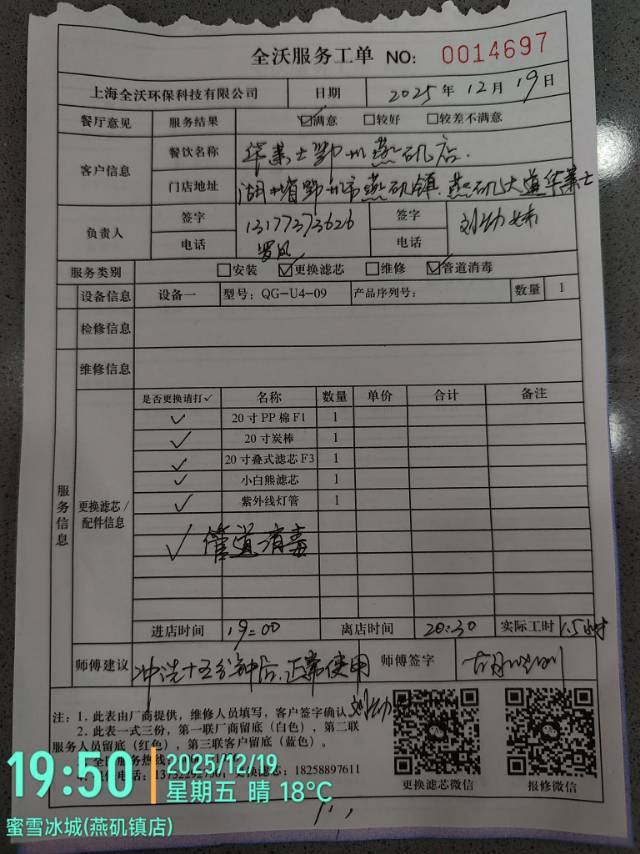 全沃服务工单 NO: 0014697
上海全沃环保科技有限公司 日期 2025年12月19日
餐厅意见 服务结果 ☑满意 □较好 □较差不满意
客户信息 餐饮名称 华莱士鄂州燕矶店.
门店地址 湖北省鄂州市燕矶镇燕矶大道华莱士
负责人 签字 13177373626 签字
电话 电话
服务类别 □安装 ☑更换滤芯 □维修 ☑管道消毒
设备信息 设备一 型号: QG-U4-09 产品序列号: 数量 1
检修信息
维修信息
服务信息
更换滤芯/配件信息
是否更换请打✓ 名称 数量 单价 合计 备注
✓ 20寸PP棉F1 1
✓ 20寸炭棒 1
✓ 20寸叠式滤芯F3 1
✓ 小白熊滤芯 1
✓ 紫外线灯管 1
✓ 管道消毒
进店时间 19:00 离店时间 20:30 实际工时 1.5小时
师傅建议 冲洗十五分钟后,正常使用 师傅签字
注: 1. 此表由厂商提供, 维修人员填写, 客户签字确认
2. 此表一式三份, 第一联厂商留底（白色）, 第二联
服务人员留底（红色）, 第三联客户留底（蓝色）。
18258897611
更换滤芯微信 报修微信
19:50 2025/12/19
星期五 晴 18°C
蜜雪冰城(燕矶镇店)